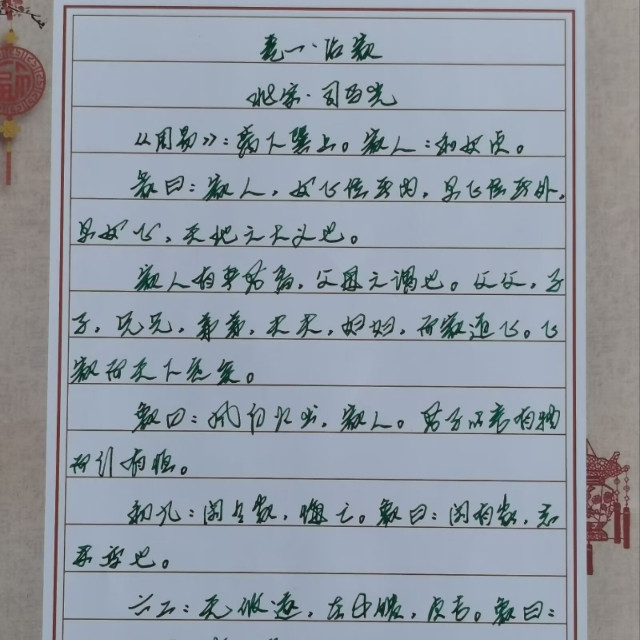 卷一·治家
北宋·司马光
《周易》:离下巽上。家人:利女贞。
彖曰:家人,女正位乎内,男正位乎外,
男女正,天地之大义也。
家人有严君焉,父母之谓也。父父,子
子,兄兄,弟弟,夫夫,妇妇,而家道正。正
家而天下定矣。
象曰:风自火出,家人。君子以言有物
而行有恒。
初九:闲有家,悔亡。象曰:闲有家,志
未变也。
六二:无攸遂,在中馈,贞吉。象曰: